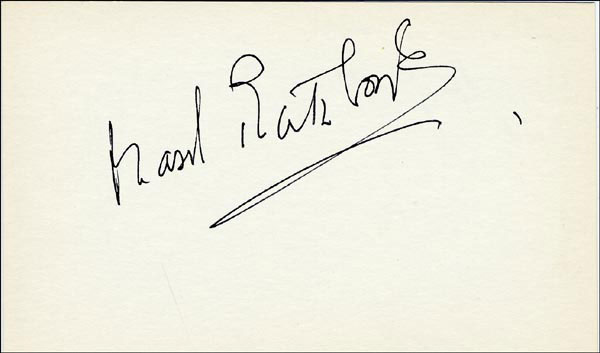 Basil Rathbone